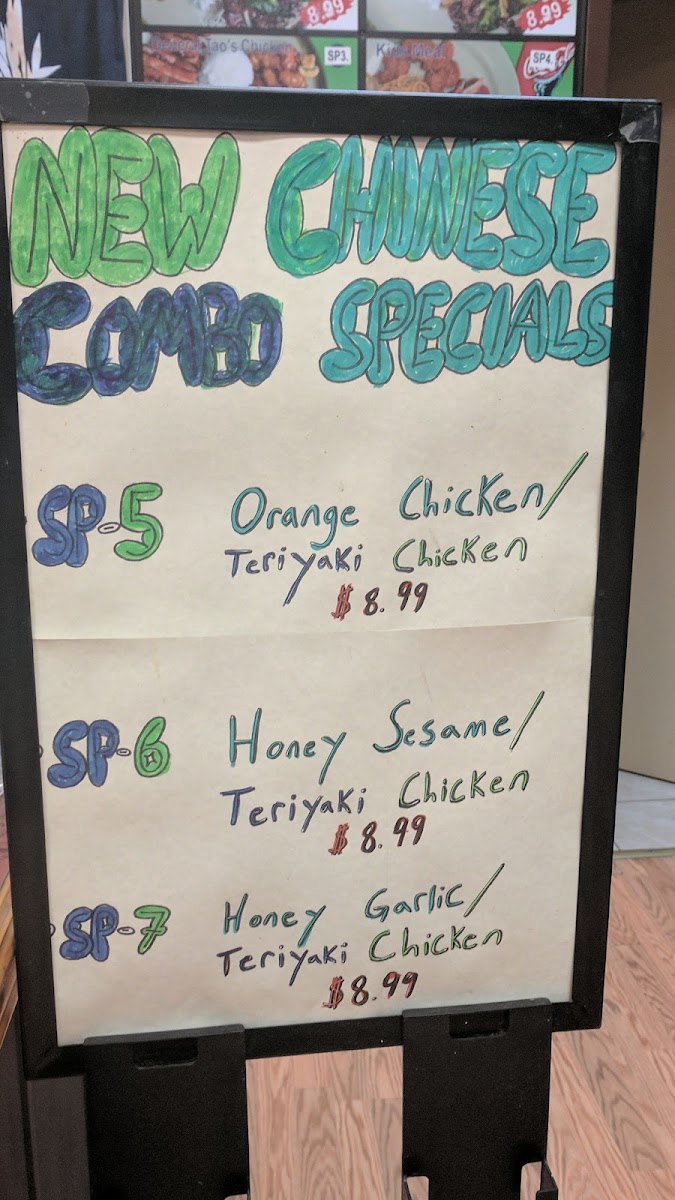 8.99
8.99
General Tao's Chicken
SP3.
SP4.
NEW CHINESE
COMBO SPECIALS
SP-5 Orange Chicken/
Teriyaki Chicken
$8.99
SP-6 Honey Sesame/
Teriyaki Chicken
$8.99
SP-7 Honey Garlic/
Teriyaki Chicken
$8.99